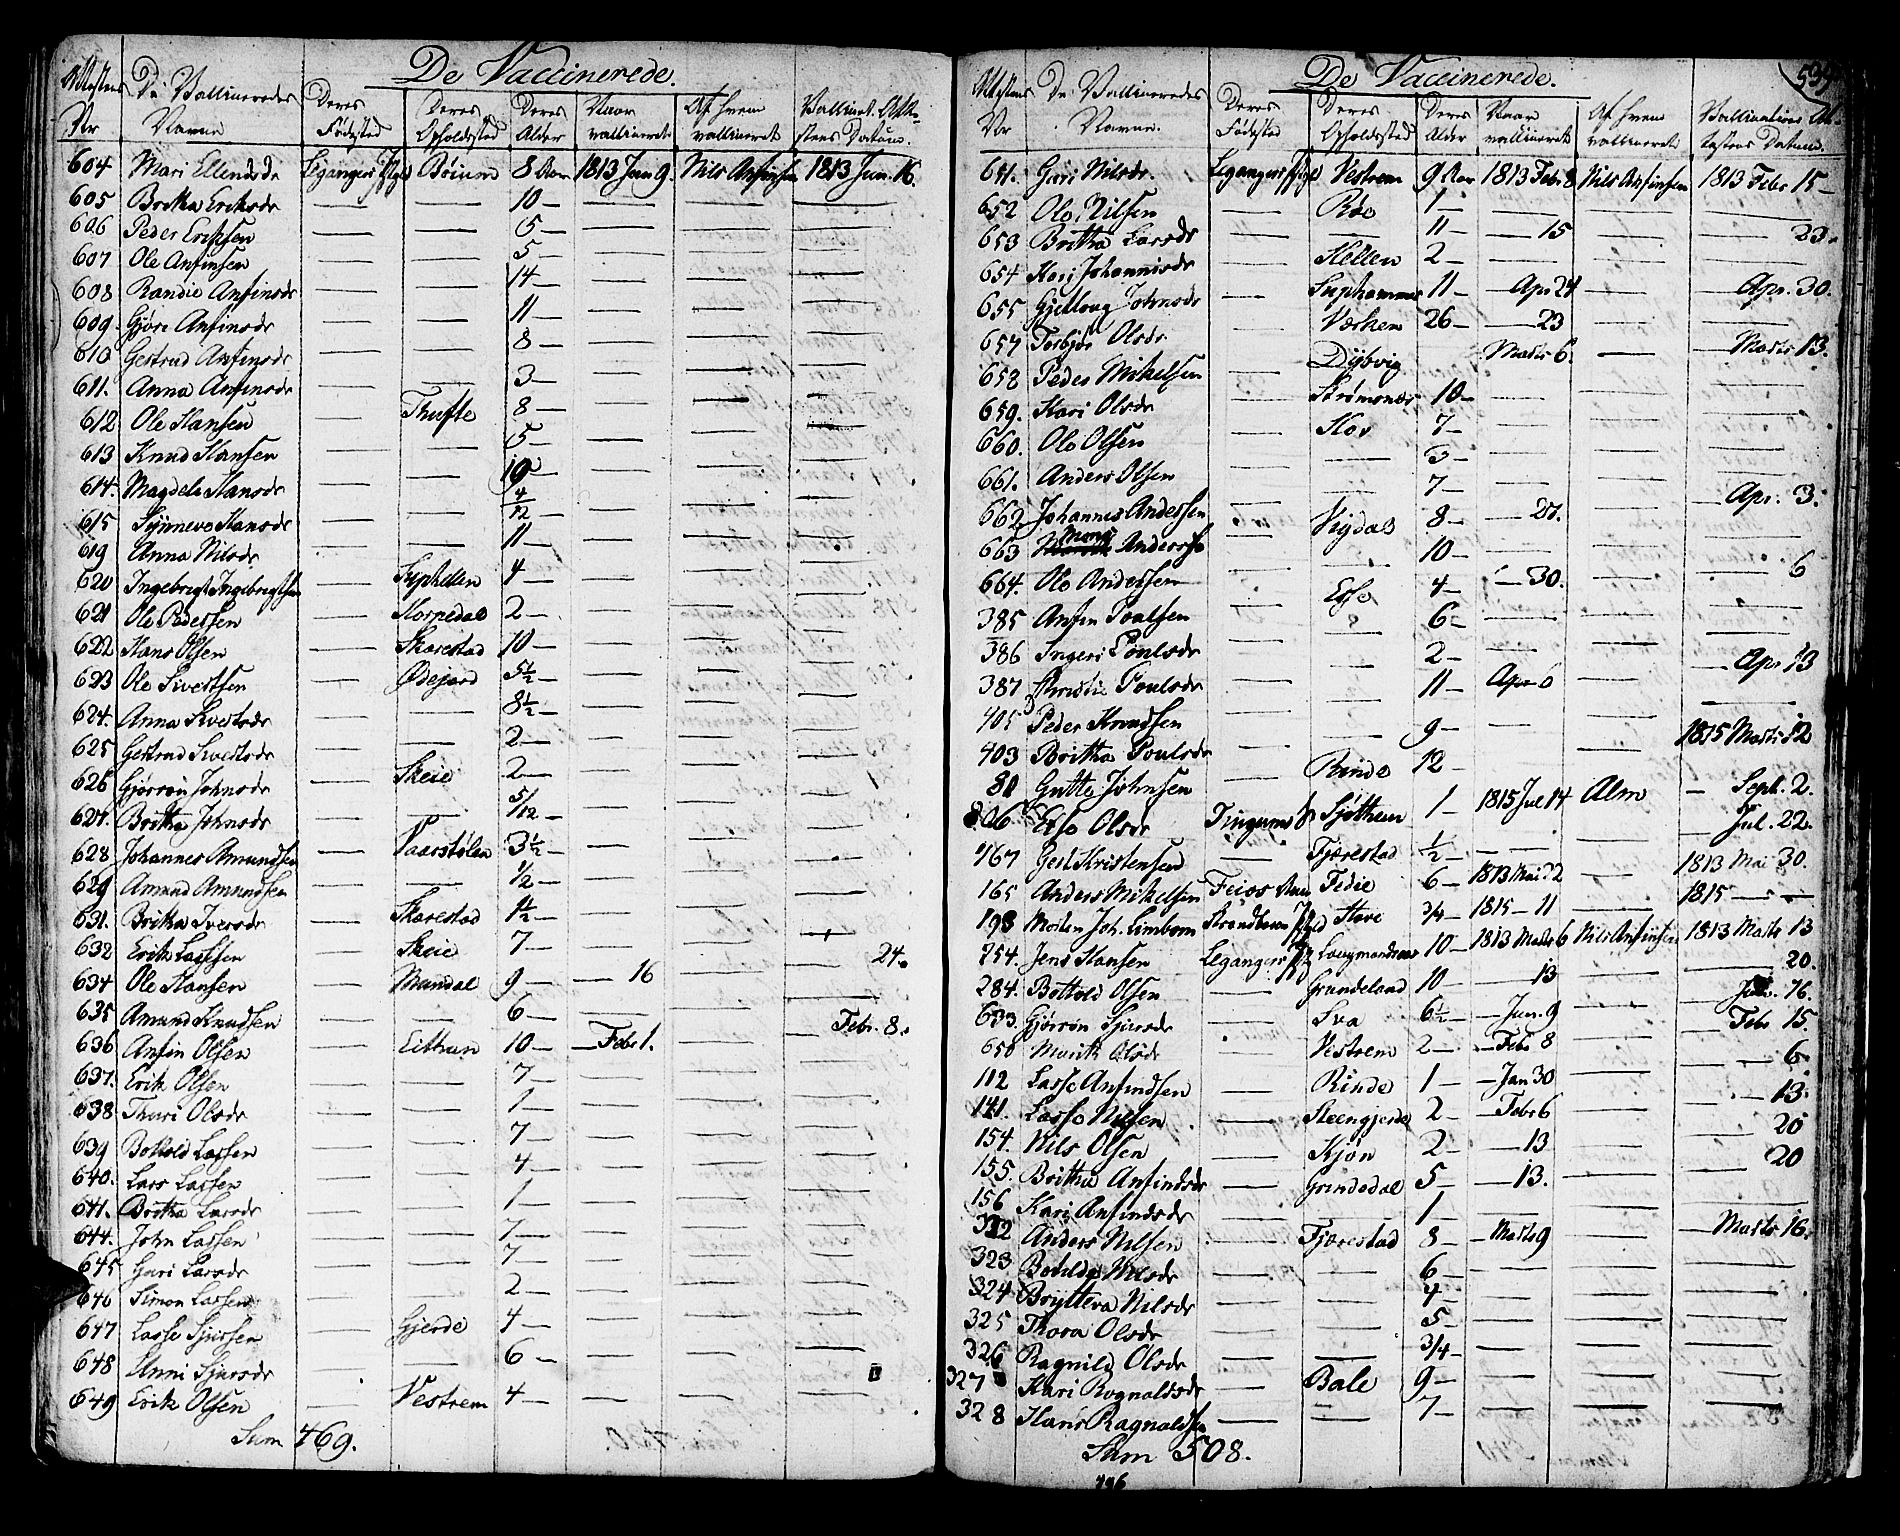 De Vaccinerede.
Attestens Nr | De Vaccineredes Navne | Deres Fødested | Deres Opholdssted | Deres Alder | Naar vaccineret | Af hvem vaccineret | Vaccinat. Attestens Datum.
604 Mari Ellendsdr Legangers Bøium 8 Aar 1813 Jun 9. Nils Anfinsen 1813 Jun. 16.
605 Britha Eriksdr — — 10 — — — —
606 Peder Eriksen — — 5 — — — —
607 Ole Anfinsen — — 5 — — — —
608 Randie Anfinsdr — — 14 — — — —
609. Gjøri Anfinsdr — — 11 — — — —
610 Gertrud Anfinsdr — — 8 — — — —
611. Anna Anfinsdr — — 3 — — — —
612 Ole Hansen — Thufte 8 — — — —
613 Knud Hansen — — 5 — — — —
614. Magdela Hansdr — — 10 — — — —
615 Synneve Hansdr — — 4/12 — — — —
619 Anna Nilsdr — — 11 — — — —
620 Ingebrigt Ingebrigtsen — Suphellen 4 — — — —
621 Ole Pedersen — Horpedal 2 — — — —
622 Hans Olsen — Skarestad 10 — — — —
623 Ole Sivertsen — Ødejord 5½ — — — —
624. Anna Sivertsdr — — 8½ — — — —
625 Gertrud Sivertsdr — — 2 — — — —
626 Gjørron Johnsdr — Skeie 2 — — — —
627. Britha Johnsdr — — 5/12 — — — —
628 Johannes Amundsen — Vaarstølen 3½ — — — —
629 Amund Amundsen — — 1/2 — — — —
631. Britha Iversdr — Skarestad 1½ — — — —
632 Erik Larsen — Skeie 7 — — — — 24.
634 Ole Hansen — Mundal 9 — — 16 — —
635 Amund Knudsen — — 6 — — — —
636 Anfin Olsen — Eithun 10 — — Febr 1. — — Febr. 8.
637. Erik Olsen — — 7 — — — —
638. Thuri Olsdr — — 1 — — — —
639 Bottold Larsen — — 7 — — — —
640. Lars Larsen — — 4 — — — —
641. Britha Larsdr — — 1 — — — —
644. John Larsen — — 7 — — — —
645 Guri Larsdr — — 7 — — — —
646 Simon Larsen — — 2 — — — —
647 Lasse Sjursen — Gjerde 4 — — — —
648 Anni Sjursdr — — 6 — — — —
649 Erik Olsen — Vestrem 4 — — — —
Sum 469.
De Vaccinerede.
539
Attestens Nr | De Vaccineredes Navne. | Deres Fødested | Deres Opholdssted | Deres Alder | Naar vaccineret | Af hvem vaccineret | Vaccinations Attestens Datum.
651. Guri Nilsdr. Legangers Vestrem 9 Aar 1813 Febr 8 Nils Anfinsen 1813 Febr 15 —
652 Ole Nilsen — Røe 1 — — — —
653 Britha Larsdr — — 11 — — 15 — 23.
654 Kari Johannisdr — Hellen 2 — — — —
655 Gjellaug Johnsdr — Suphammer 11 — — Apr 24 — — Apr. 30.
657 Torbjør Olsdr — Værhem 26 — — 23 — —
658 Peder Mikelsen — Dybvig Marts 6. — — Marts 13.
659. Kari Olsdr — Strømsnæs 10 — — — —
660. Ole Olsen — Hov 7 — — — —
661. Anders Olsen — — 3 — — — —
662 Johannes Andersen — — 7 — — — — Apr. 3.
663 Mons Andersen — Vigdal 8 — — 27. — —
664. Ole Andersen — — 10 — — — — 6
385 Anfin Poulsen — Esse 4 — — 30. — —
386 Ingeri Poulsdr — — 6 — — — —
387 Christie Poulsdr — — 2 — — — — Apr 13
405 Peder Knudsen — — 11 — Apr 6 — —
403 Britha Poulsdr — — 9 — — — 1815 Marts 12
81 Gutte Johnsen — Rinde 12 — — — Sept. 2.
206 Esse Olsdr Tingums Sjøthun 1 — 1815 Jul 14 Alm — Jul. 22.
467 Gert Kristensen — Fjærestad 1/2 — — — 1813 Mai 30.
165 Anders Mikelsen Feios Fedie 6 — 1813 Mai 22 — 1815 — —
198 Morten Joh. Limbom Strandbarm Hove 3/4 — 1815 — 11 —
254. Jens Hansen Legangers Laugmandsnæs 10 — 1813 Marts 6 Nils Anfinsen 1813 Marts 13
284. Bottold Olsen — Grundeland 10 — — 13 — — 20.
633. Gjørron Sjursdr — Sva 6½ — — Jun. 9 — — Jun. 16.
650 Marith Olsdr — Vestrem 2 — — Febr 8 — — Febr 15.
112 Lasse Anfindsen — Rinde 1 — — Jan 30 — — 6.
141. Lasse Nilsen — Steengjerde 2 — — Febr 6 — — 13.
154. Nils Olsen — Kjøn 2 — — 13 — — 20
155. Britha Anfindsdr — Grindedal 5 — — 13. — — 20
156 Kari Anfindsdr — — 1 — — — —
322 Anders Nilsen — Fjærestad 8 — — Marts 9 — — Marts 16.
323 Botilda Nilsdr — — 6 — — — —
324 Brytteva Nilsdr — — 4 — — — —
325 Thora Olsdr — — 5 — — — —
326 Ragnild Olsdr — — 3/4 — — — —
327 Kari Ragnaldsdr — Bale 9 — — — —
328 Hans Ragnaldsen — — 7 — — — —
Sum 508.